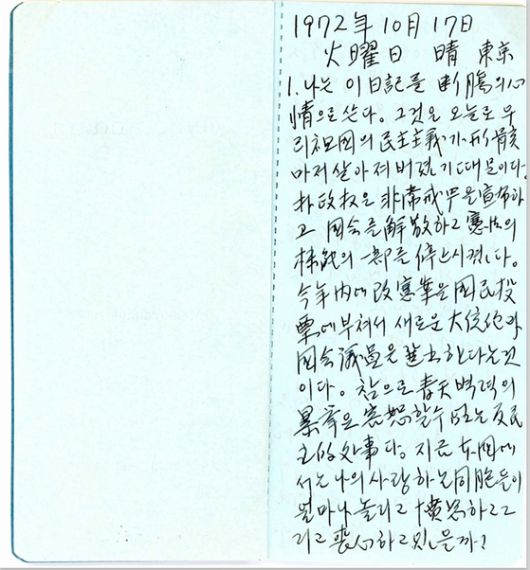 1972年 10月 17日
火曜日 晴 東京
1. 나는 이 日記를 斷腸의 心
情으로 쓴다. 그것은 오늘로 우
리 祖国의 民主主義가 形骸
마저 살아져 버렸기 때문이다.
朴政权은 非常戒严을 宣布하
고 国会를 解散하고 憲法의
機能의 一部를 停止시켰다.
今年内에 改憲案을 国民投
票에 부쳐서 새로운 大統領과
国会議員을 選出한다는 것
이다. 참으로 春天벽력의
暴挙은 容恕할 수 없는 反民
主的 处事다. 지금 本国에
서는 나의 사랑하는 同胞들이
얼마나 놀라고 憤怒하고 그
리고 喪心하고 있을까!